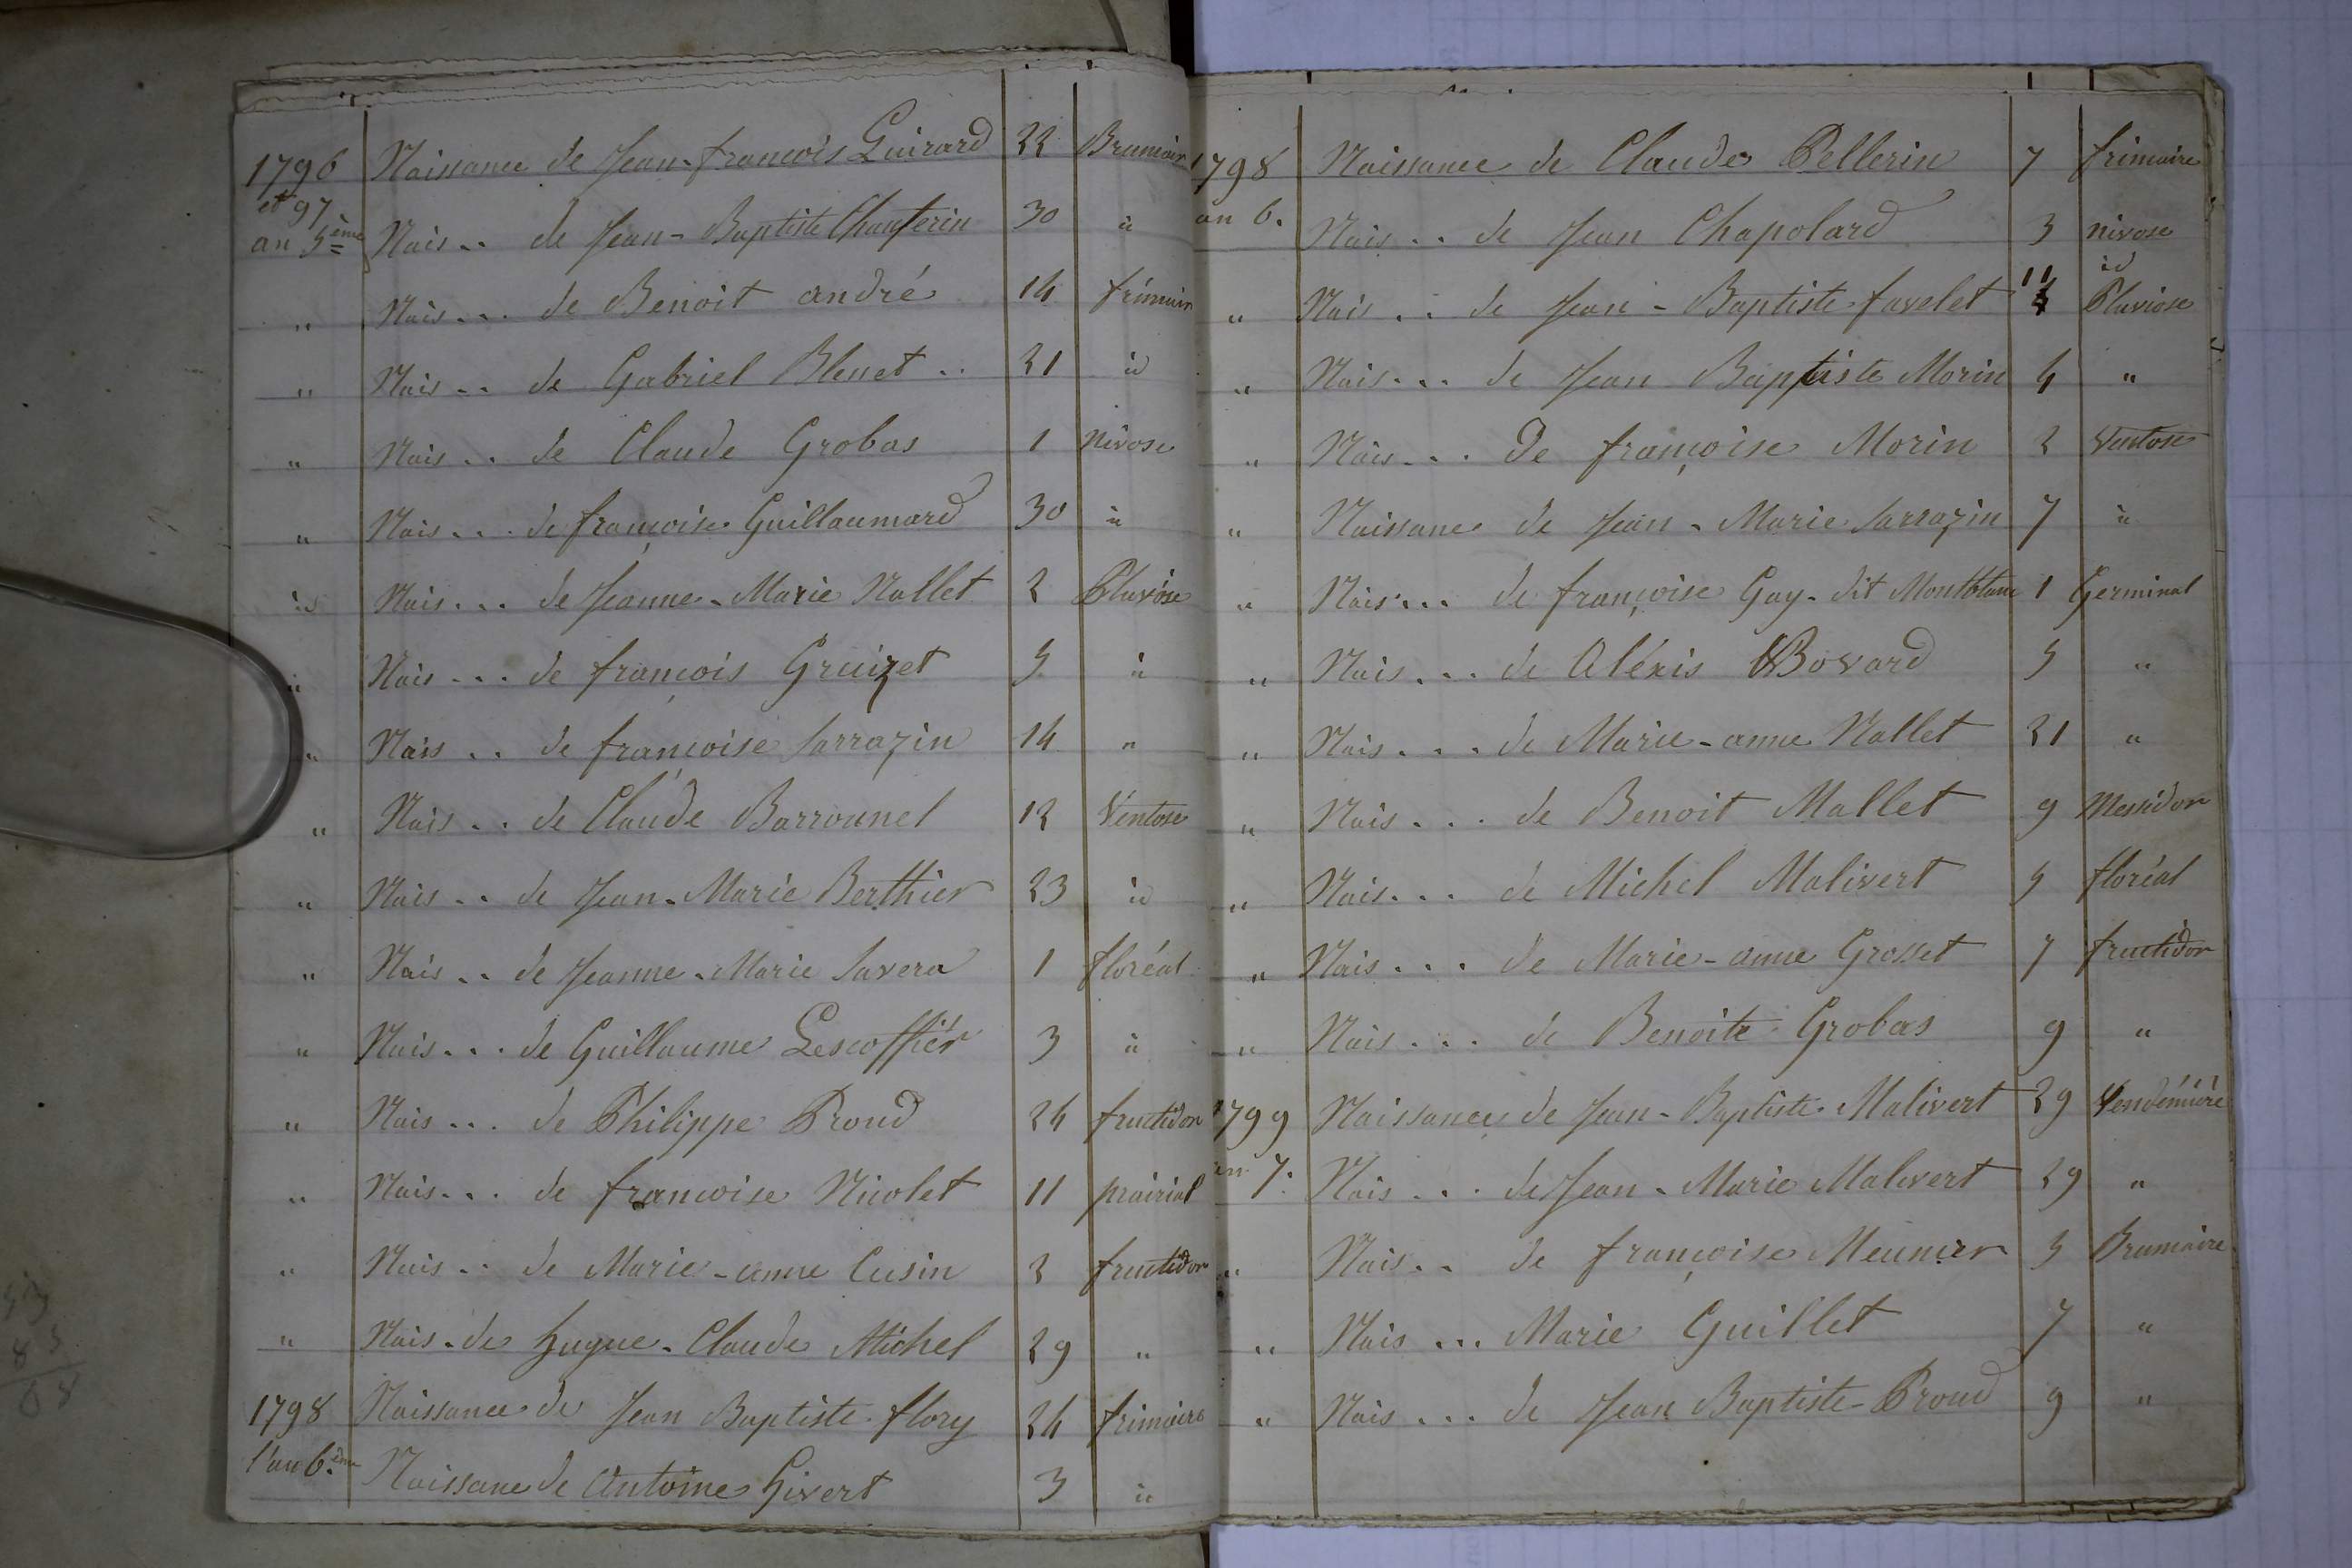 1796 Naissance de Jean-françois Guirard 22 Brumair
et 97
an 5ème Nais .. de Jean-Baptiste Chanterin 30 id
" Nais ... de Benoit andré 14 frimair
" Nais .. de Gabriel Blenet .. 21 id
" Nais .. de Claude Grobas 1 nivose
" Nais ... de françoise Guillaumard 30 id
id Nais ... de Jeanne-Marie Nallet 2 Pluviose
" Nais ... de françois Gruizet 5 id
" Nais .. de françoise Sarrazin 14 "
" Nais .. de Claude Barrounel 12 Ventose
" Nais .. de Jean-Marie Berthier 23 id
" Nais .. de Jeanne-Marie Savera 1 floréal
" Nais ... de Guillaume Lescoffier 3 id
" Nais ... de Philippe Proud 24 fructidor
" Nais ... de françoise Nicolet 11 prairial
" Nais .. de Marie-anne Cusin 2 fructidor
" Nais. de hugue-Claude Michel 29 "
1798 Naissance de Jean Baptiste flory 24 frimaire
l'an 6.ème Naissane de Antoine hivert 3 id
1798 Naissance de Claude Pellerin 7 frimaire
an 6. Nais .. de Jean Chapolard 3 nivose
11 id
" Nais ... de Jean-Baptiste favelet 4 Pluviose
" Nais ... de Jean Baptiste Morin 4 "
" Nais ... De françoise Morin 2 Ventose
" Naissane de Jean-Marie Sarrazin 7 id
" Nais ... de françoise Gay-dit Montblanc 1 Germinal
" Nais ... de Aléxis Bovard 5 "
" Nais ... de Marie-anne Nallet 21 "
" Nais ... de Benoit Mallet 9 Messidor
" Nais ... de Michel Malivert 5 floréal
" Nais ... de Marie-anne Grosset 7 fructidor
" Nais ... de Benoite Grobas 9 "
1799 Naissance de Jean-Baptiste Malivert 29 Vendémière
an 7. Nais ... de Jean-Marie Malivert 29 "
" Nais .. de françoise Meunier 5 Brumaire
" Nais ... Marie Guillet 7 "
" Nais ... de Jean Baptiste-Proud 9 "